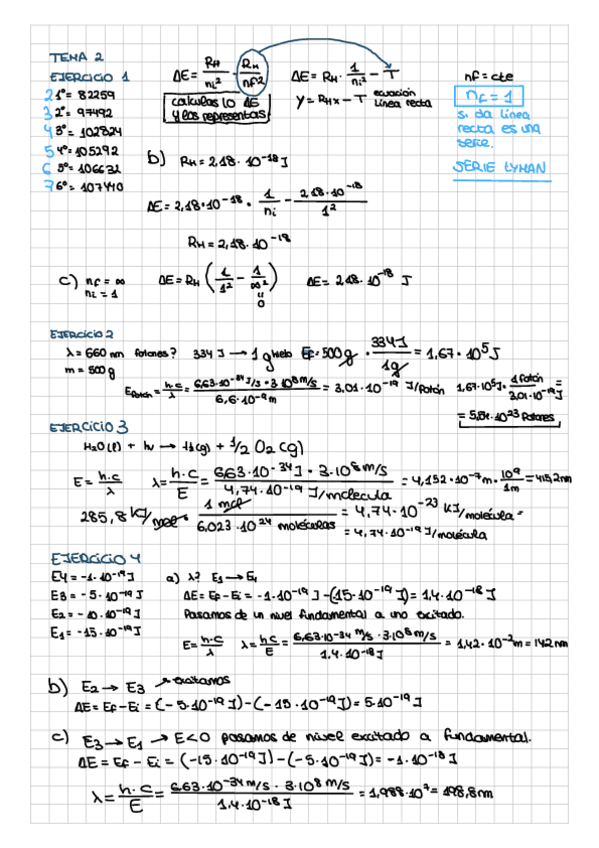 TEMA 2
EJERCICIO 1
ΔE = RH/ni² - RH/nf²
ΔE = RH · 1/ni² - T
nf = cte
calculas lo ΔE
y los representas
y = RHx - T ecuación
línea recta
nf = 1
si da línea
recta es una
serie.
SERIE LYMAN
2 1º = 82259
3 2º = 97492
4 3º = 102824
5 4º = 105292
6 5º = 106632
7 6º = 107440
b) RH = 2,18 · 10⁻¹⁸ J
ΔE = 2,18 · 10⁻¹⁸ · 1/ni - 2,18 · 10⁻¹⁸/1²
RH = 2,18 · 10⁻¹⁸
c) nf = ∞
ni = 1
ΔE = RH (1/1² - 1/∞²)
0
ΔE = 2,18 · 10⁻¹⁸ J
EJERCICIO 2
λ = 660 nm fotones? 334 J → 1 g hielo Ef = 500 g · 334 J/1 g = 1,67 · 10⁵ J
m = 500 g
Efotón = h·c/λ = 6,63·10⁻³⁴ J/s · 3·10⁸ m/s / 6,6·10⁻⁹ m = 3,01 · 10⁻¹⁹ J/fotón
1,67·10⁵ J · 1 fotón/3,01·10⁻¹⁹ J =
= 5,54·10²³ fotones
EJERCICIO 3
H₂O(l) + hν → H₂(g) + 1/2 O₂ (g)
E = h·c/λ λ = h·c/E = 6,63·10⁻³⁴ J · 3·10⁸ m/s / 4,74·10⁻¹⁹ J/molecula = 4,152·10⁻⁷ m · 10⁹/1m = 415,2 nm
285,8 KJ/mol · 1 mol/6,023·10²⁴ moléculas = 4,74·10⁻²³ KJ/molécula =
= 4,74·10⁻¹⁹ J/molécula
EJERCICIO 4
E4 = -1·10⁻¹⁹ J
E3 = -5·10⁻¹⁹ J
E2 = -10·10⁻¹⁹ J
E1 = -15·10⁻¹⁹ J
a) λ? E1 → E4
ΔE = Ef - Ei = -1·10⁻¹⁹ J - (15·10⁻¹⁹ J) = 1,4·10⁻¹⁸ J
Pasamos de un nivel fundamental a uno excitado.
E = h·c/λ λ = h·c/E = 6,63·10⁻³⁴ m/s · 3·10⁸ m/s / 1,4·10⁻¹⁸ J = 1,42·10⁻² m = 142 nm
b) E2 → E3 → excitamos
ΔE = Ef - Ei = (-5·10⁻¹⁹ J) - (-15·10⁻¹⁹ J) = 5·10⁻¹⁹ J
c) E3 → E1 → E<0 pasamos de nivel excitado a fundamental.
ΔE = Ef - Ei = (-15·10⁻¹⁹ J) - (-5·10⁻¹⁹ J) = -1·10⁻¹⁸ J
λ = h·c/E = 6,63·10⁻³⁴ m/s · 3·10⁸ m/s / 1,4·10⁻¹⁸ J = 1,988·10⁷ = 198,8 nm